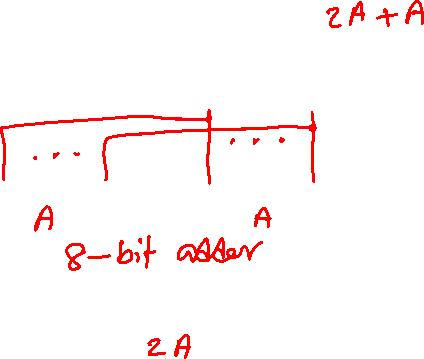 2A + A
... ...
A A
8-bit adder
2A